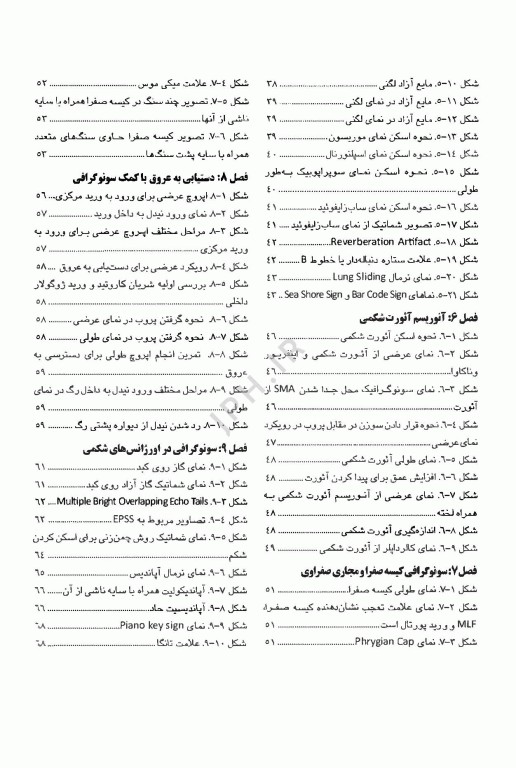 شکل ۱۰-۵. مایع آزاد لگنی ........ ۳۸
شکل ۱۱-۵. مایع آزاد در نمای لگنی ........ ۳۹
شکل ۱۲-۵. مایع آزاد در نمای لگنی ........ ۳۹
شکل ۱۳-۵. نحوه اسکن نمای موریسون ........ ۳۹
شکل ۱۴-۵. نحوه اسکن نمای اسپلنورنال ........ ۴۰
شکل ۱۵-۵. نحوه اسکن نمای سوپراپوبیک به‌طور
طولی ........ ۴۰
شکل ۱۶-۵. نحوه اسکن نمای ساب‌زایفوئید ........ ۴۱
شکل ۱۷-۵. تصویر شماتیک از نمای ساب‌زایفوئید ........ ۴۱
شکل ۱۸-۵. Reverberation Artifact ........ ۴۲
شکل ۱۹-۵. علامت ستاره دنباله‌دار یا خطوط B ........ ۴۲
شکل ۲۰-۵. نمای نرمال Lung Sliding ........ ۴۳
شکل ۲۱-۵. نماهای Bar Code Sign و Sea Shore Sign .. ۴۳
فصل ۶: آنوریسم آئورت شکمی
شکل ۱-۶. نحوه اسکن آئورت شکمی ........ ۴۶
شکل ۲-۶. نمای عرضی از آئورت شکمی و اینفریور
وناکاوا ........ ۴۶
شکل ۳-۶. نمای سونوگرافیک محل جدا شدن SMA از
آئورت ........ ۴۶
شکل ۴-۶. نحوه قرار دادن سوزن در مقابل پروب در رویکرد
نمای عرضی ........ ۴۷
شکل ۵-۶. نمای طولی آئورت شکمی ........ ۴۸
شکل ۶-۶. افزایش عمق برای پیدا کردن آئورت ........ ۴۸
شکل ۷-۶. نمای عرضی از آنوریسم آئورت شکمی به
همراه لخته ........ ۴۸
شکل ۸-۶. اندازه‌گیری آئورت شکمی ........ ۴۸
شکل ۹-۶. نمای کالرداپلر از آئورت شکمی ........ ۴۹
فصل ۷: سونوگرافی کیسه صفرا و مجاری صفراوی
شکل ۱-۷. نمای طولی کیسه صفرا ........ ۵۱
شکل ۲-۷. نمای علامت تعجب نشان‌دهنده کیسه صفرا،
MLF و ورید پورتال است ........ ۵۱
شکل ۳-۷. نمای Phrygian Cap ........ ۵۱
شکل ۴-۷. علامت میکی موس ........ ۵۲
شکل ۵-۷. تصویر چند سنگ در کیسه صفرا همراه با سایه
ناشی از آنها ........ ۵۳
شکل ۶-۷. تصویر کیسه صفرا حاوی سنگ‌های متعدد
همراه با سایه پشت سنگ‌ها ........ ۵۳
فصل ۸: دستیابی به عروق با کمک سونوگرافی
شکل ۱-۸. اپروچ عرضی برای ورود به ورید مرکزی ... ۵۶
شکل ۲-۸. نمای ورود نیدل به داخل ورید ........ ۵۷
شکل ۳-۸. مراحل مختلف اپروچ عرضی برای ورود به
ورید مرکزی ........ ۵۷
شکل ۴-۸. رویکرد عرضی برای دست‌یابی به عروق .... ۵۸
شکل ۵-۸. بررسی اولیه شریان کاروتید و ورید ژوگولار
داخلی ........ ۵۸
شکل ۶-۸. نحوه گرفتن پروب در نمای عرضی ........ ۵۸
شکل ۷-۸. نحوه گرفتن پروب در نمای طولی ........ ۵۸
شکل ۸-۸. تمرین انجام اپروچ طولی برای دسترسی به
عروق ........ ۵۹
شکل ۹-۸. مراحل مختلف ورود نیدل به داخل رگ در نمای
طولی ........ ۵۹
شکل ۱۰-۸. رد شدن نیدل از دیواره پشتی رگ ........ ۵۹
فصل ۹: سونوگرافی در اورژانس‌های شکمی
شکل ۱-۹. نمای گاز روی کبد ........ ۶۱
شکل ۲-۹. نمای شماتیک گاز آزاد روی کبد ........ ۶۱
شکل ۳-۹. Multiple Bright Overlapping Echo Tails ... ۶۲
شکل ۴-۹. تصاویر مربوط به EPSS ........ ۶۳
شکل ۵-۹. نمای شماتیک روش چمن‌زنی برای اسکن کردن
شکم ........ ۶۴
شکل ۶-۹. نمای نرمال آپاندیس ........ ۶۵
شکل ۷-۹. آپاندیکولیت همراه با سایه ناشی از آن ...... ۶۶
شکل ۸-۹. آپاندیسیت حاد ........ ۶۶
شکل ۹-۹. نمای Piano key sign ........ ۶۸
شکل ۱۰-۹. علامت تانگا ........ ۶۸
JPH.IR